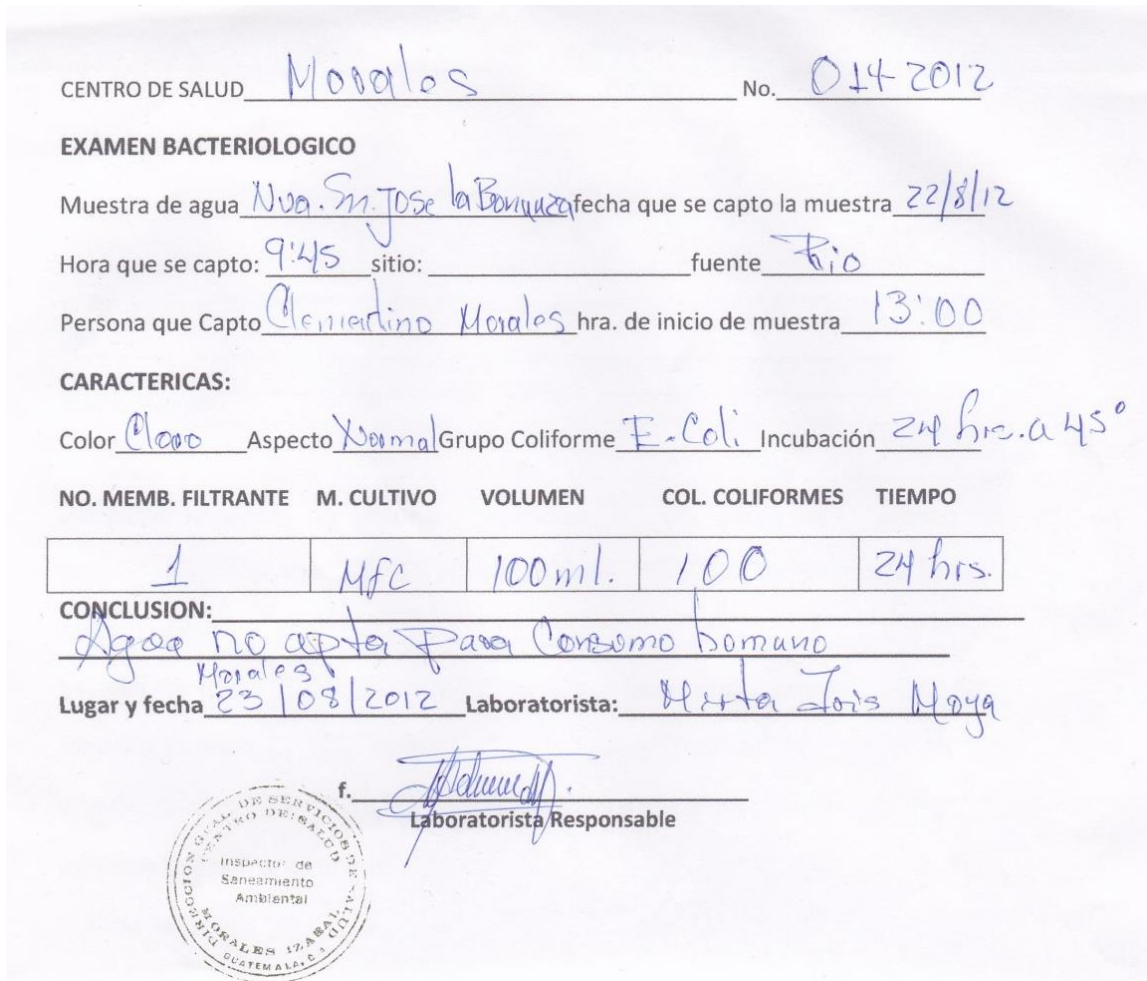 CENTRO DE SALUD Morales No. 014-2012
EXAMEN BACTERIOLOGICO
Muestra de agua Nva. Sn. Jose la Bonanza fecha que se capto la muestra 22/8/12
Hora que se capto: 9:45 sitio: fuente Rio
Persona que Capto Clementino Morales hra. de inicio de muestra 13:00
CARACTERICAS:
Color Claro Aspecto Normal Grupo Coliforme E. Coli Incubación 24 hrs. a 45°
NO. MEMB. FILTRANTE M. CULTIVO VOLUMEN COL. COLIFORMES TIEMPO
1 Mfc 100 ml. 100 24 hrs.
CONCLUSION:
Agua no apta Para Consumo homano
Morales
Lugar y fecha 23/08/2012 Laboratorista: Mirta Moya
f.
Laboratorista Responsable
DIRECCION GRAL. DE SERVICIOS DE SALUD
CENTRO DE SALUD
Inspector de
Saneamiento
Ambiental
MORALES IZABAL
GUATEMALA, C.